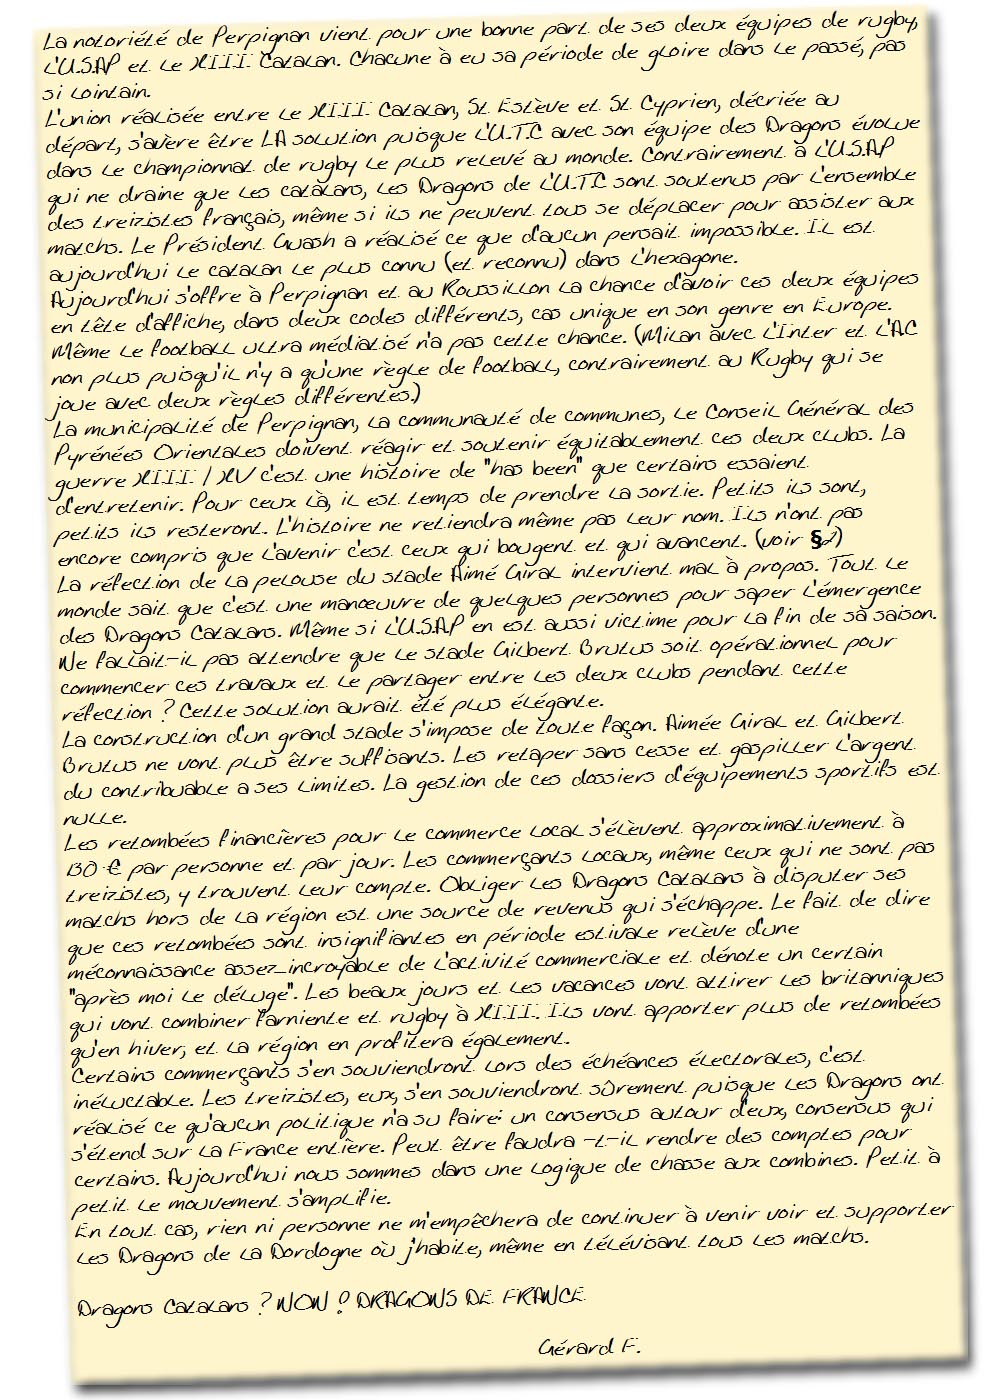 La notoriété de Perpignan vient pour une bonne part de ses deux équipes de rugby,
L'U.S.AP et le XIII Catalan. Chacune à eu sa période de gloire dans le passé, pas
si lointain.
L'union réalisée entre le XIII Catalan, St Estève et St Cyprien, décriée au
départ, s'avère être LA solution puisque L'U.T.C avec son équipe des Dragons évolue
dans le championnat de rugby le plus relevé au monde. Contrairement à L'U.S.AP
qui ne draine que les catalans, les Dragons de L'U.T.C sont soutenus par l'ensemble
des treizistes français, même si ils ne peuvent tous se déplacer pour assister aux
matchs. Le Président Guash a réalisé ce que d'aucun pensait impossible. Il est
aujourd'hui le catalan le plus connu (et reconnu) dans l'hexagone.
Aujourd'hui s'offre à Perpignan et au Roussillon la chance d'avoir ces deux équipes
en tête d'affiche, dans deux codes différents, cas unique en son genre en Europe.
Même le football ultra médiatisé n'a pas cette chance. (Milan avec L'Inter et L'AC
non plus puisqu'il n'y a qu'une règle de football, contrairement au Rugby qui se
joue avec deux règles différentes.)
La municipalité de Perpignan, la communauté de communes, le Conseil Général des
Pyrénées Orientales doivent réagir et soutenir équitablement ces deux clubs. La
guerre XIII / XV c'est une histoire de "has been" que certains essaient
d'entretenir. Pour ceux là, il est temps de prendre la sortie. Petits ils sont,
petits ils resteront. L'histoire ne retiendra même pas leur nom. Ils n'ont pas
encore compris que l'avenir c'est ceux qui bougent et qui avancent. (voir §2)
La réfection de la pelouse du stade Aimé Giral intervient mal à propos. Tout le
monde sait que c'est une manœuvre de quelques personnes pour saper l'émergence
des Dragons Catalans. Même si L'U.S.AP en est aussi victime pour la fin de sa saison.
Ne fallait-il pas attendre que le stade Gilbert Brutus soit opérationnel pour
commencer ces travaux et le partager entre les deux clubs pendant cette
réfection ? Cette solution aurait été plus élégante.
La construction d'un grand stade s'impose de toute façon. Aimée Giral et Gilbert
Brutus ne vont plus être suffisants. Les retaper sans cesse et gaspiller l'argent
du contribuable a ses limites. La gestion de ces dossiers d'équipements sportifs est
nulle.
Les retombées financières pour le commerce local s'élèvent approximativement à
130 € par personne et par jour. Les commerçants locaux, même ceux qui ne sont pas
treizistes, y trouvent leur compte. Obliger les Dragons Catalans à disputer ses
matchs hors de la région est une source de revenus qui s'échappe. Le fait de dire
que ces retombées sont insignifiantes en période estivale relève d'une
méconnaissance assez incroyable de l'activité commerciale et dénote un certain
"après moi le déluge". Les beaux jours et les vacances vont attirer les britanniques
qui vont combiner farniente et rugby à XIII. Ils vont apporter plus de retombées
qu'en hiver, et la région en profitera également.
Certains commerçants s'en souviendront lors des échéances électorales, c'est
inéluctable. Les treizistes, eux, s'en souviendront sûrement puisque les Dragons ont
réalisé ce qu'aucun politique n'a su faire: un consensus autour d'eux, consensus qui
s'étend sur la France entière. Peut être faudra -t-il rendre des comptes pour
certains. Aujourd'hui nous sommes dans une logique de chasse aux combines. Petit à
petit le mouvement s'amplifie.
En tout cas, rien ni personne ne m'empêchera de continuer à venir voir et supporter
les Dragons de la Dordogne où j'habite, même en télévisant tous les matchs.
Dragons Catalans ? NON ! DRAGONS DE FRANCE
Gérard F.